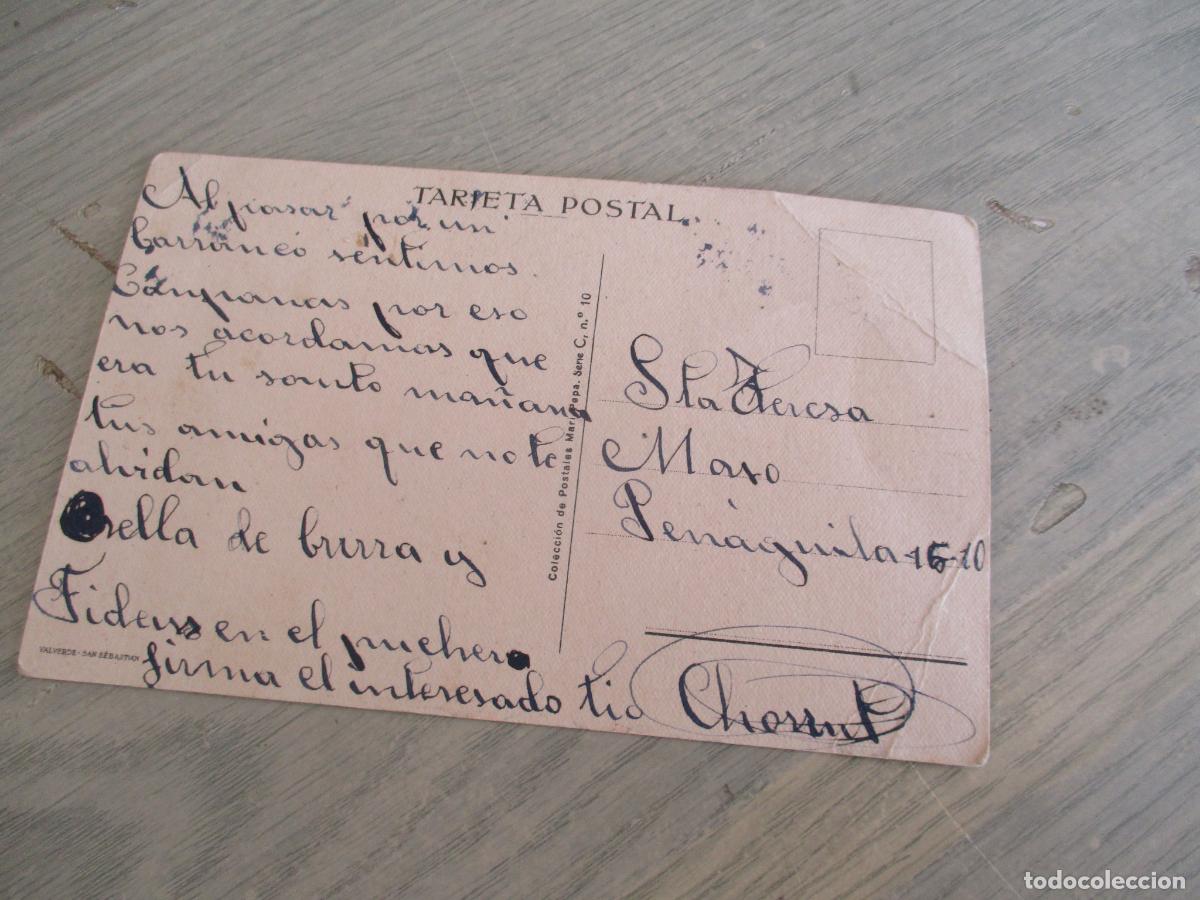 TARJETA POSTAL
Al pasar por un
barranco sentimos
Campanas por eso
nos acordamos que
era tu santo mañana
tus amigas que no te
olvidan
Orella de burra y
Fideus en el puchero
firma el interesado tio
VALVERDE - SAN SEBASTIAN
Colección de Postales Mari Pepa. Serie C, n.º 10
Sta Teresa
Maxo
Penáguila 15-10
todocoleccion